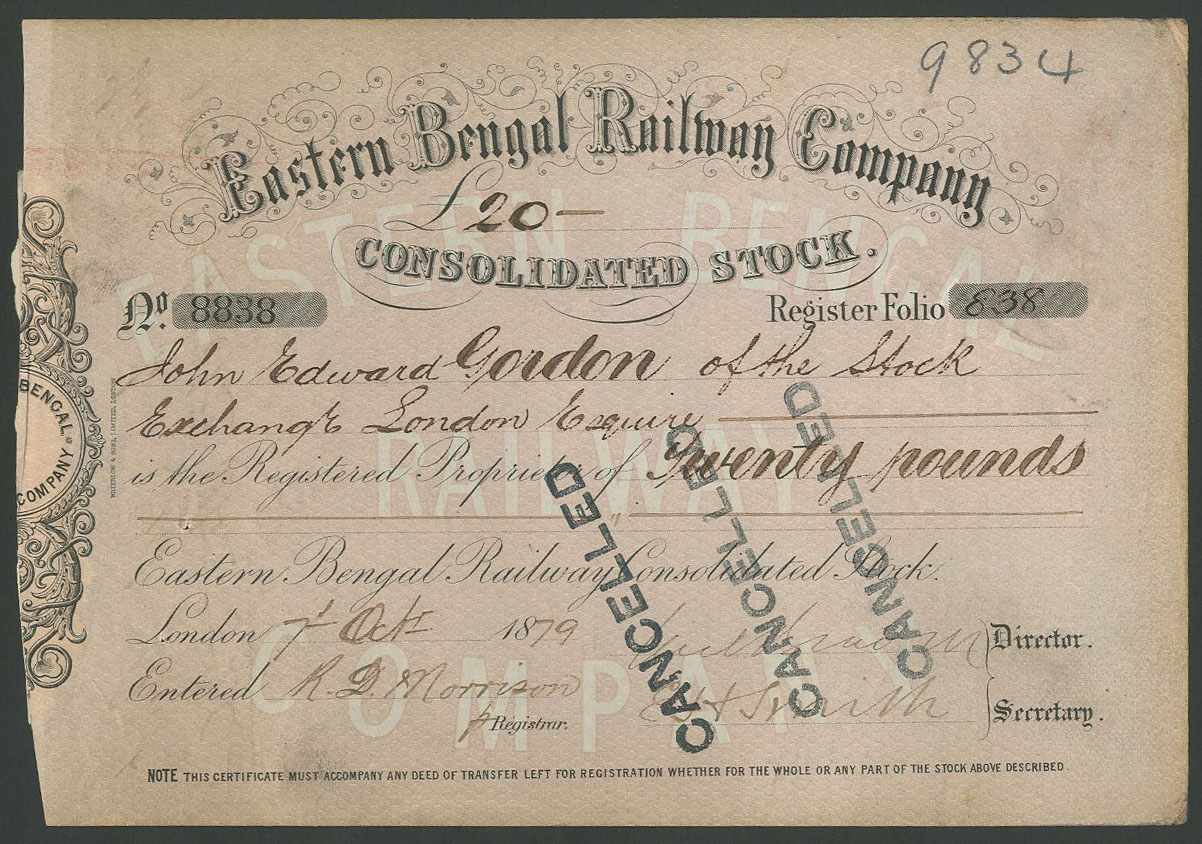 9834
Eastern Bengal Railway Company
£20—
CONSOLIDATED STOCK.
No. 8838 Register Folio 838
John Edward Gordon of the Stock
Exchange London Esquire
is the Registered Proprietor of Twenty pounds
Eastern Bengal Railway Consolidated Stock.
London 7th Oct 1879
Director.
Entered R. D. Morrison
Smith Secretary.
p Registrar.
NOTE THIS CERTIFICATE MUST ACCOMPANY ANY DEED OF TRANSFER LEFT FOR REGISTRATION WHETHER FOR THE WHOLE OR ANY PART OF THE STOCK ABOVE DESCRIBED.
CANCELLED
CANCELLED
CANCELLED
EASTERN BENGAL
RAILWAY
COMPANY
BENGAL
COMPANY
WATERLOW & SONS, LIMITED, LONDON